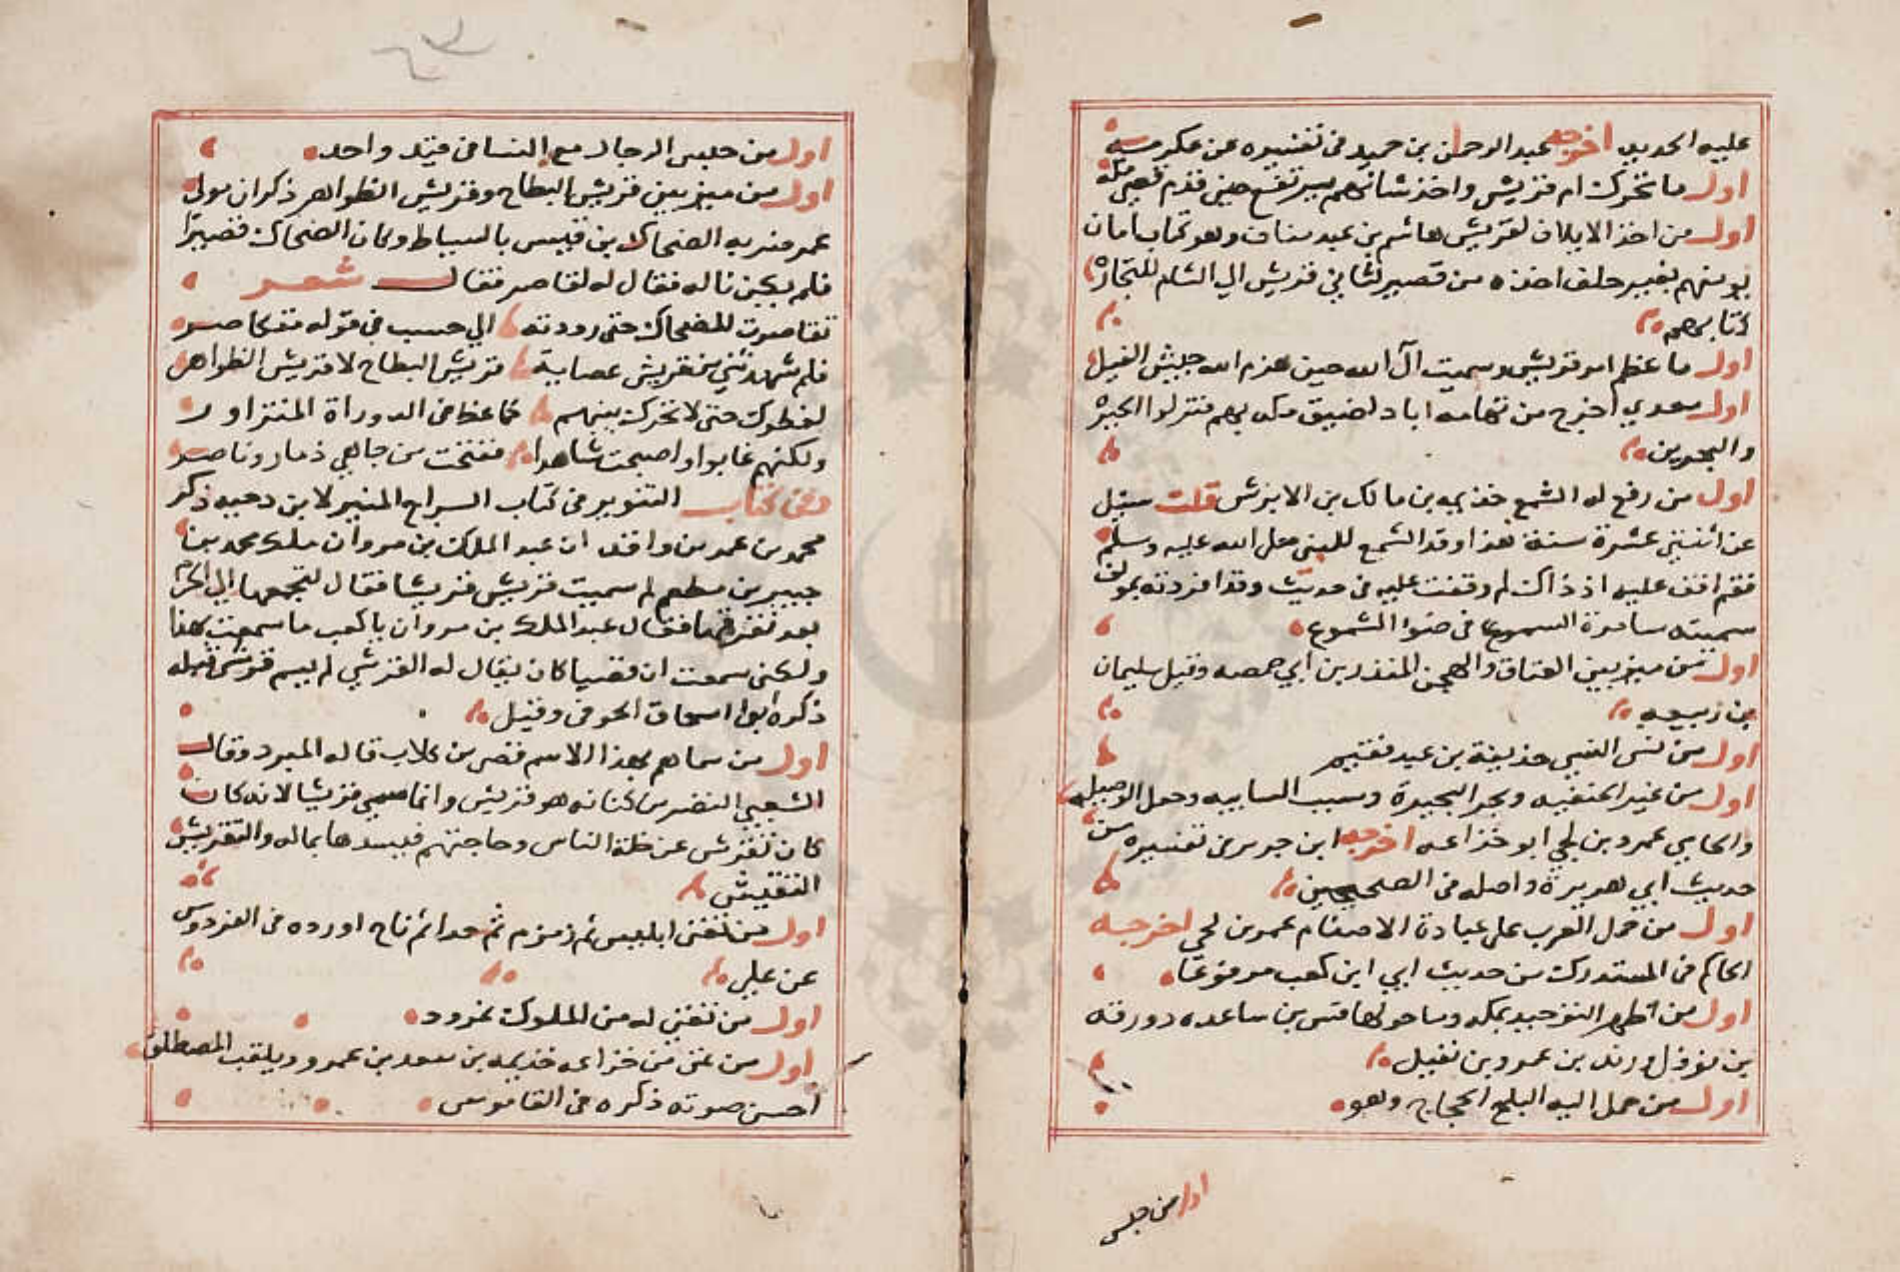 عليه الحديد اخرجه عبد الرحمن بن حميد في تفسيره عن عكرمه
اول ما تحرك ام قريش واخذ شانهم يرتفع حين قدم قصي مكه
اول من اخذ الايلاف لقريش هاشم بن عبد مناف وهو كتاب امان
يومنهم بغير حلف اخذه من قصير لثاني قريش الي الشام للتجاره
كتابهم
اول ما عظم امر قريش وسميت آل الله حين هزم الله جيش الفيل
اول معدي اخرج من تهامه اياد لضيق مكه بهم فنزلوا الحيره
والبحرين
اول من رفع له الشمع خذيمه بن مالك بن الابرش قلت سيل
عن اثنتي عشرة سنة هذا وقد الشمع للنبي صلى الله عليه وسلم
فقم اقف عليه اذ ذاك لم وقفت عليه في حديث وقد افردته بمولف
سميته سامرة السموع في ضوا الشموع
اول من ميز بين العتاق والهجن المنذر بن ابي حمصه وقيل سليمان
بن زبيعه
اول من نسى النسي حذيفة بن عبد فقيم
اول من غير الحنفيه وبحر البحيرة وسيب السايبه وحمل الوصيله
والحامي عمرو بن لحي ابو خزاعه اخرجه ابن جرير في تفسيره من
حديث ابي هريرة واصله في الصحيحين
اول من حمل العرب على عبادة الاصنام عمر بن لحي اخرجه
الحاكم في المستدرك من حديث ابي ابن كعب مرفوعا
اول من اظهر التوحيد بمكه وما حولها قس بن ساعده وورقه
بن نوفل وزيد بن عمرو بن نفيل
اول من حمل اليه البلح الحجاج وهو
اول من حلس
اول من حلس الرجال مع النسا في قيد واحد
اول من ميز بين قريش البطاح وقريش الظواهر ذكوان مولى
عمر ضربه الضحاك بن قيس بالسياط وكان الضحاك قصيرا
فلم يكن ناله فقال له لقاصر فقال شعر
تقاصرت للضحاك حتى رددته الي حسب في قوله متقاصر
فلم شهدتني من قريش عصابة قريش البطاح لا قريش الظواهر
لغطوك حتى لا تحرك بينهم كما غط في الدوراة المتزاور
ولكنهم غابوا واصبحت شاهدا فقبحت من حامي ذمار وناصر
وفي كتاب التنوير في كتاب السراج المنير لابن دحيه ذكر
محمد بن عمر بن واقد ان عبد الملك بن مروان ملك محمد بن
جبير بن مطعم لم سميت قريش قريشا فقال لتجمعها الي الحرم
بعد تفرقها فقال عبد الملك بن مروان يا كعب ما سمعت هذا
ولكني سمعت ان قصيا كان يقال له القرشي لم يسم قرشي قبله
ذكره ابوا اسحاق الحوفي وقيل
اول من سماهم بهذا الاسم قصي بن كلاب قاله المبرد وقال
الشعبي النضر بن كنانه هو قريش وانما سمي قريشا لانه كان
كان تقرش عن خلة الناس وحاجتهم فيسدها بماله والتقريش
التفتيش
اول من تغنى ابليس ثم زمزم ثم حدا ثم ناح اورده في الفردوس
عن علي
اول من تغني له من الملوك نمرود
اول من غنى من خزاعه خذيمه بن سعد بن عمرو ويلقب المصطلق
احسن صوته ذكره في القاموس